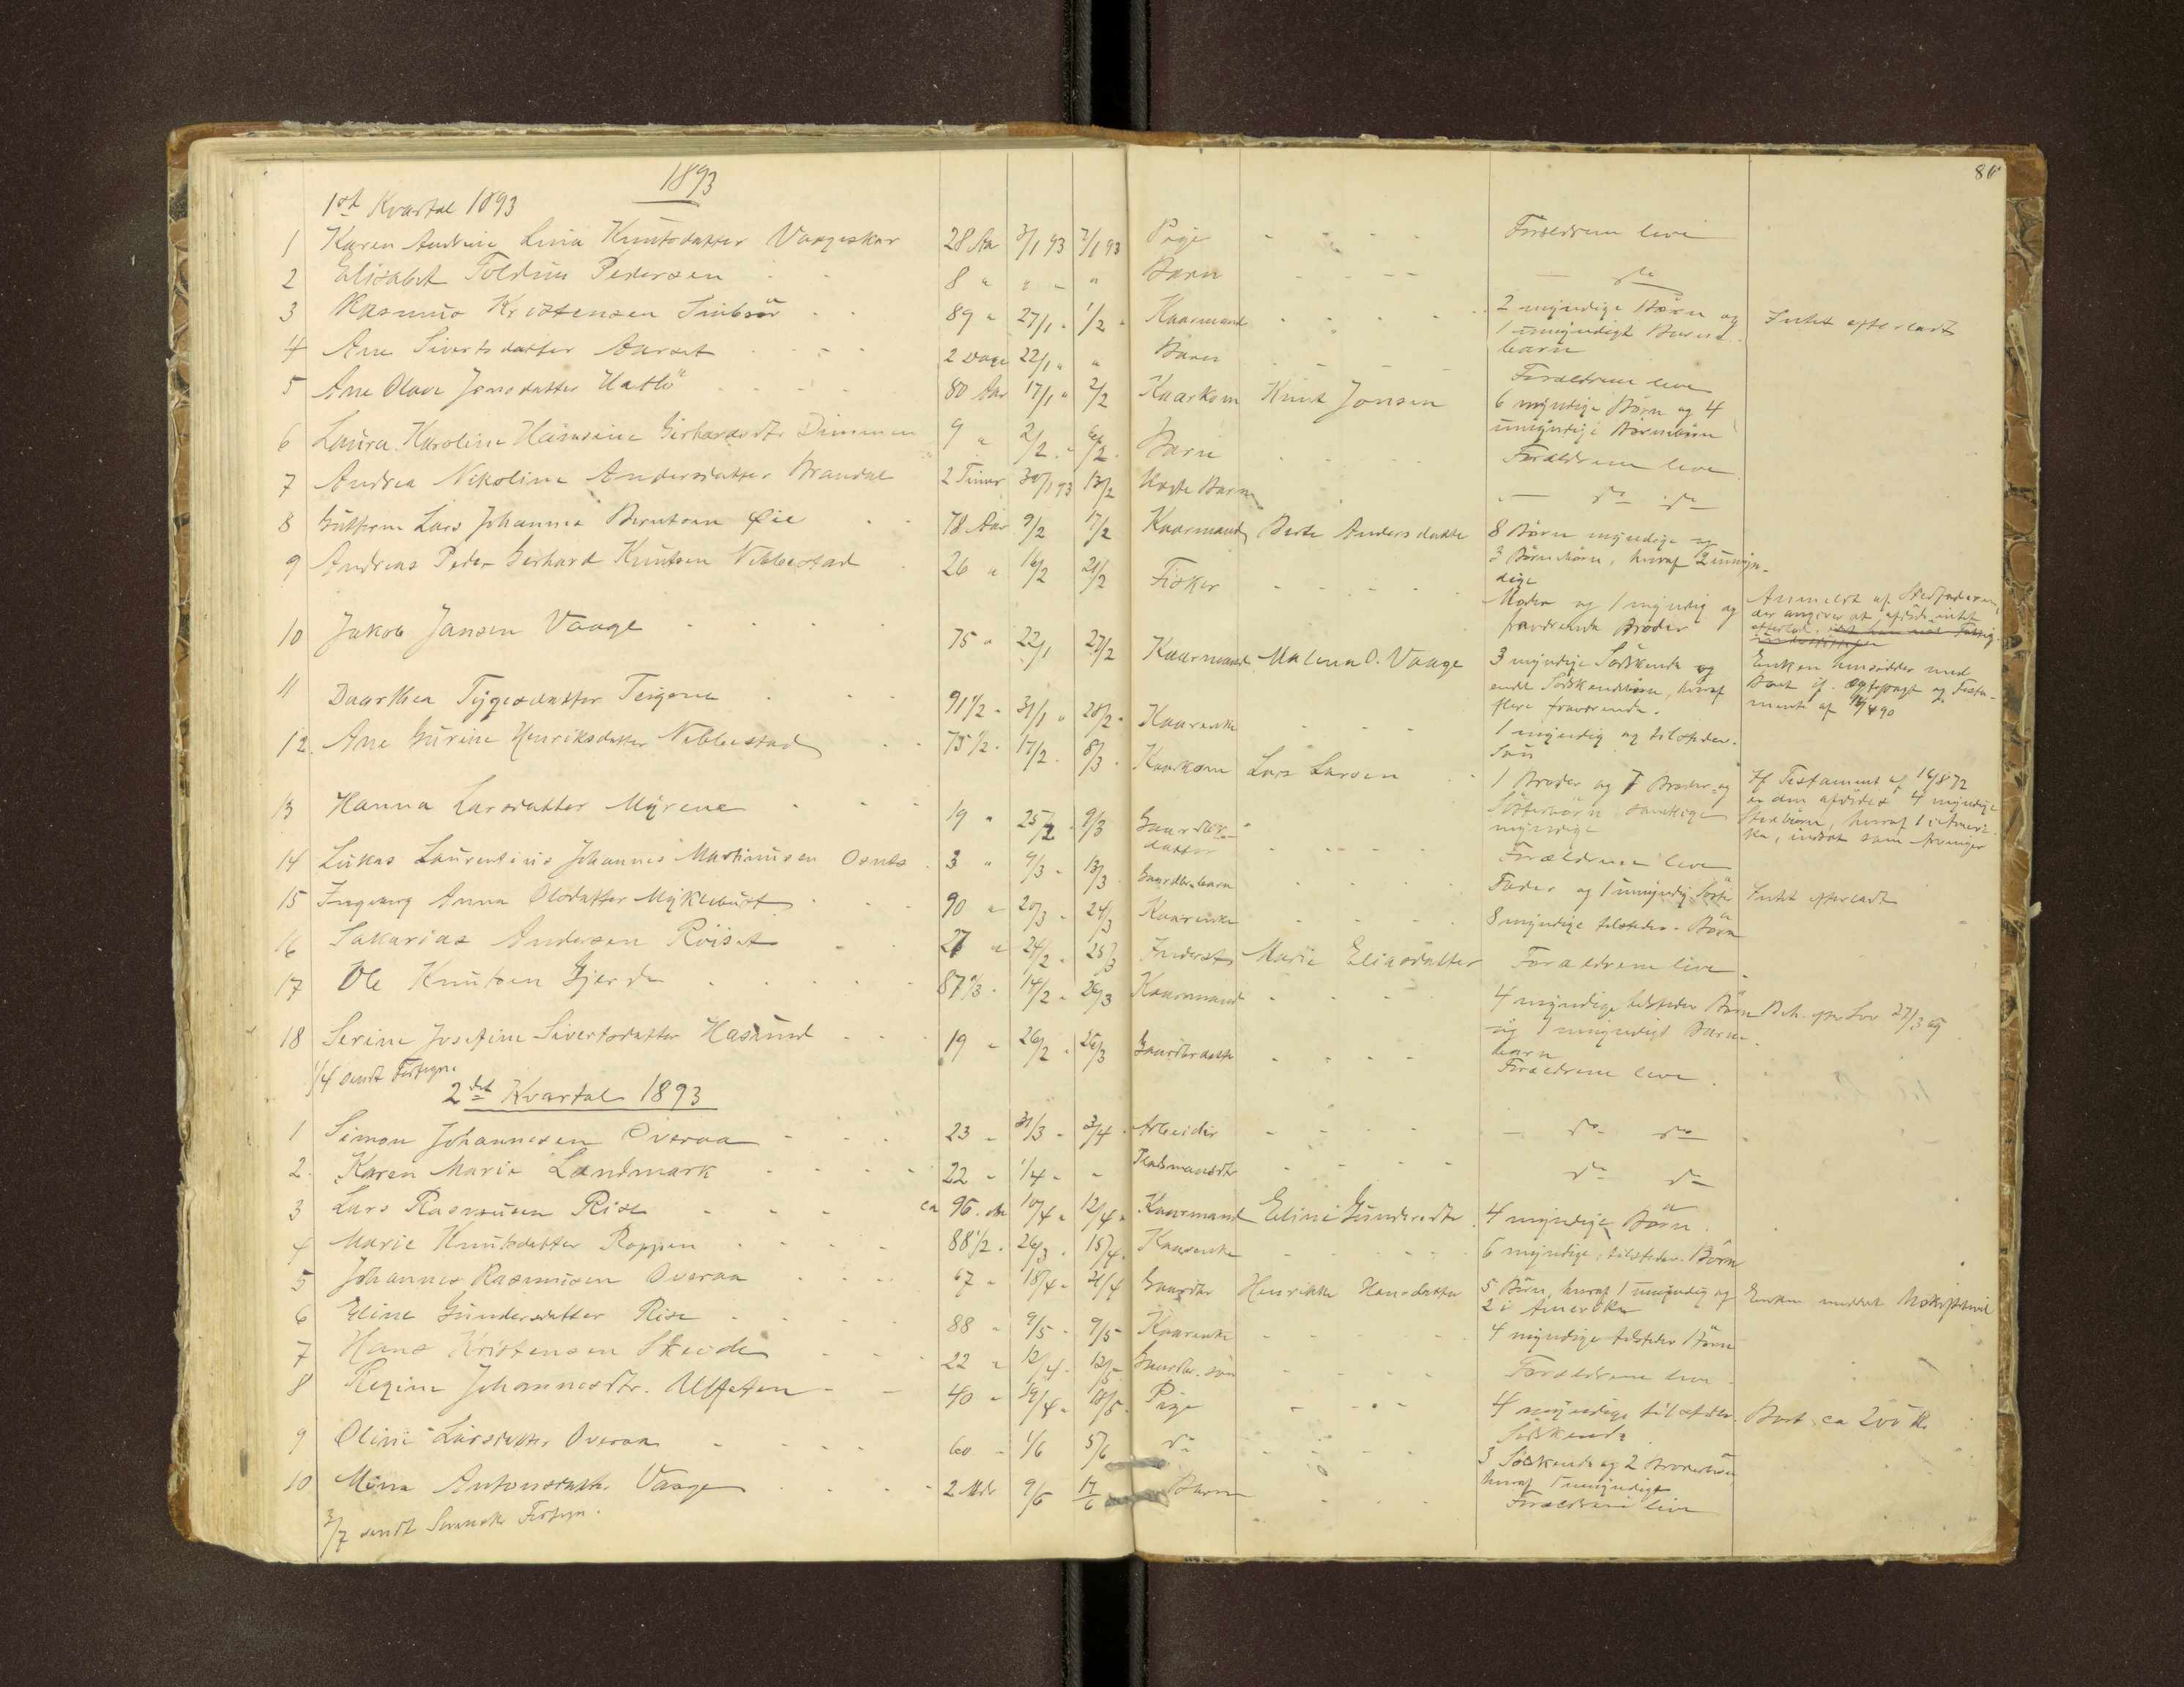 1893
80
1st Kvartal 1893
1 Karen Andrine Lina Knutsdatter Vaageskar 28 Aar 3/1 93 7/1 93 Pige - - - - Forældrene leve
2 Elisabet Toldine Pedersen 8 " " - " Barn - - - - — do
3 Rasmus Kristensen 89 " 27/1 " 1/2 " Kaarmand - - - - 2 myndige Børn og Intet efterladt
1 umyndigt Barne-
barn
4 Ane Sivertsdatter Aarset 2 Dage 22/1 " " Barn - - - Forældrene leve
5 Ane Olave Jonsdatter Hatlø 80 Aar 17/1 " 2/2 Kaarkone Knut Jonsen 6 myndige Børn og 4
umyndige Børnebørn
6 Laura Karoline Hansine Gerhardsdtr Dimmen 9 " 2/2 " Barn - - - - Forældrene leve
7 Andrea Nikoline Andersdatter Brandal 2 Timer 30/1 93 13/2 Uægte Barn — do do
8 Guttorm Lars Johannes Berntsen Øie 78 Aar 9/2 17/2 Kaarmand Berte Andersdatter 8 Børn myndige og
3 Børnebørn, hvoraf 2 umyn-
dige
9 Andreas Peder Gerhard Knutsen Nebbestad 26 " 16/2 21/2 Fisker - - - - Moder og 1 myndig og
fraværende Broder
Anmeldt af Stedfaderen,
der angiver at afdøde intet
efterlod,
10 Jakob Jansen Vaage 75 " 22/1 27/2 Kaarmand Malena O. Vaage 3 myndige Sødskende og
endel Sødskendebørn, hvoraf
flere fraværende.
Enken hensidder med
Boet if. Ægtepagt og Testa-
mente af
11 Daarthea Tygesdatter Teigene 91 1/2 " 31/1 " 28/2 " Kaarenke - - - 1 myndig og tilstedev.
Søn
12. Ane Gurine Henriksdatter Nebbestad 75 1/2 " 17/2 " 8/3 " Kaarkone Lars Larsen 1 Broder og 7 Broder- og
Søsterbørn, samtlige
myndige
If. Testament af 16/8 72
er den afdødes 4 myndige
Stedbørn, hvoraf 1 i Ameri-
ka, indsat som Arvinger
13 Hanna Larsdatter Myrene 19 " 25/2 " 9/3 Gaardbr.-
datter - - - - Forældrene leve
14 Lukas Laurentius Johannes Martinusen Osnes 3 " 9/3 " 13/3 Gaardbr. barn - - - Fader og 1 umyndig Søster Intet efterladt
15 Ingeborg Anna Olsdatter Myklebust 90 " 20/3 " 24/3 Kaarenke - - - 8 myndige tilstedev. Børn
16 Sakarias Andersen Røiset 27 " 24/2 " 25/3 Inderst Marie Eliasdatter Forældrene leve
17 Ole Knutsen Gjerde 87 1/3 " 14/2 " 26/3 Kaarmand - - - 4 myndige tilstedev Børn
og 1 umyndigt Barne-
barn
Beh. efter Lov 27/3 69
18 Serine Josefine Sivertsdatter Hasund 19 " 26/2 " 26/3 Gaardbr datter - - - - Forældrene leve.
1/4 sendt Fortegn.
2det Kvartal 1893
1 Simon Johannesen Overaa 23 " 31/3 " 3/4 " Arbeider - - - - — do do
2. Karen Marie Landmark 22 " 1/4 " " Pladsmandsdtr - - - - do do
3 Lars Rasmusen Rise ca 96 Aar 10/4 " 12/4 " Kaarmand Eline Gundersdtr 4 myndige Børn
4 Marie Knutsdatter Roppen 88 1/2 " 26/3 " 15/4 " Kaarenke - - - - 6 myndige tilstedev. Børn
5 Johannes Rasmusen Overaa 67 " 18/4 " 21/4 Gaardbr Henrikke Hansdatter 5 Børn, hvoraf 1 umyndig og
2 i Amerika
Enken meddelt Uskiftebevil
6 Eline Gundersdatter Rise 88 " 9/5 " 9/5 " Kaarenke - - - - 4 myndige tilstedev Børn
7 Hans Kristensen Skeide 22 " 12/4 " 12/5 " Gaardbr. søn - - - Forældrene leve
8 Regine Johannesdtr. Ulfsten 40 " 29/4 " 18/5 " Pige - - - - 4 myndige tilstedev.
Sødskende
Boet ca 200 Kr
9 Oline Larsdatter Overaa 60 " 1/6 5/6 do - - - - 3 Sødskende og 2 Broderbørn,
hvoraf 1 umyndigt
10 Mina Antonsdatter Vaage 2 Mdr 9/6 17/6 Barn - - - Forældrene leve
3/7 sendt Fortegn.